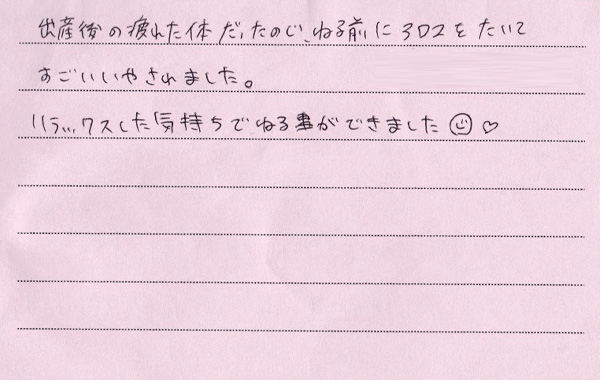 出産後の疲れた体だったので、ねる前にアロマをたいて
すごくいやされました。
リラックスした気持ちでねる事ができました☺♡